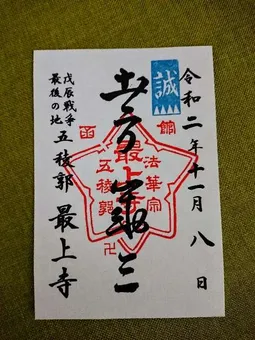 令和二年十一月八日
誠
土方歳三
戊辰戦争
最後の地
五稜郭 最上寺
法華宗
最上寺
五稜郭
卍